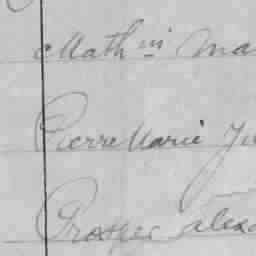 Mathin Ma
Pierre Marie Ju
Prosper alexa